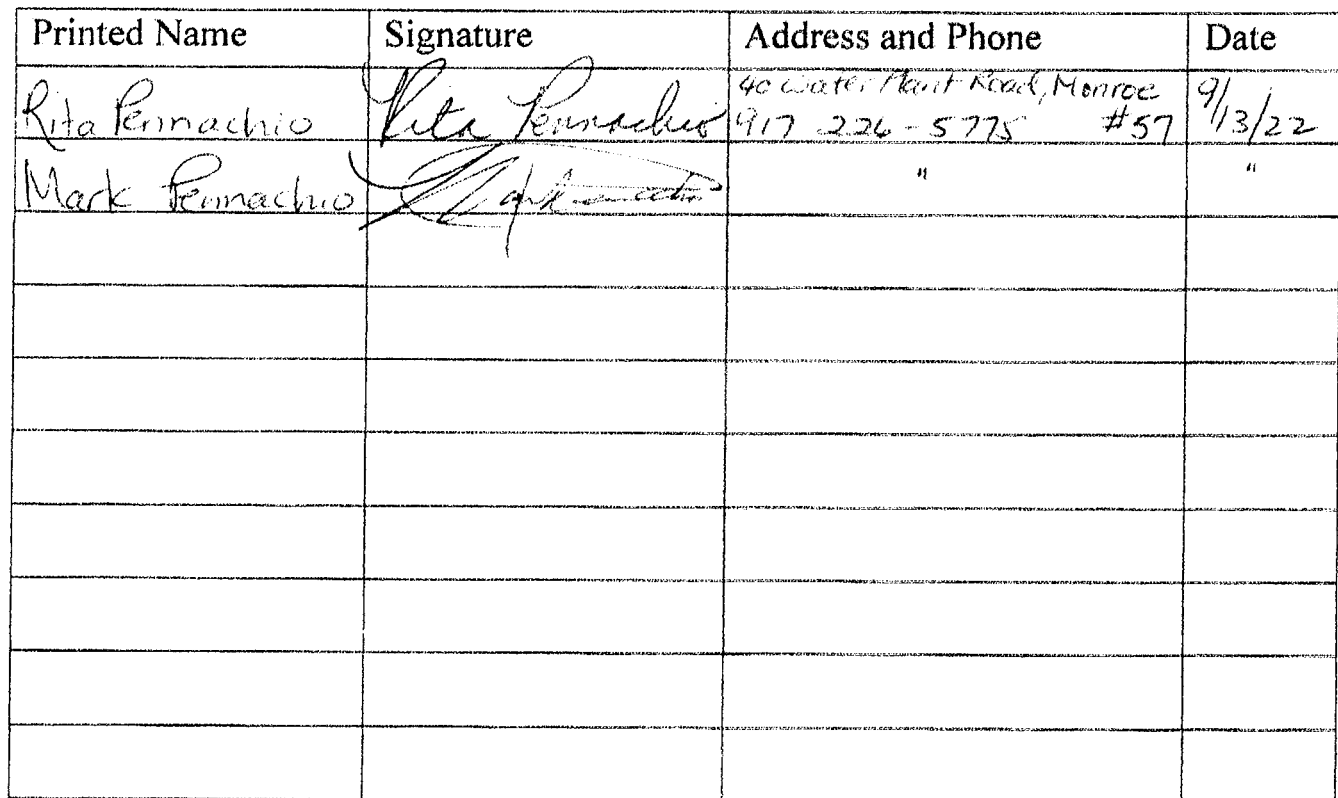 Printed Name Signature Address and Phone Date
Rita Pennachio Rita Pennachio 40 Water Plant Road, Monroe 9/13/22
917 226-5775 #57
Mark Pennachio Mark " "